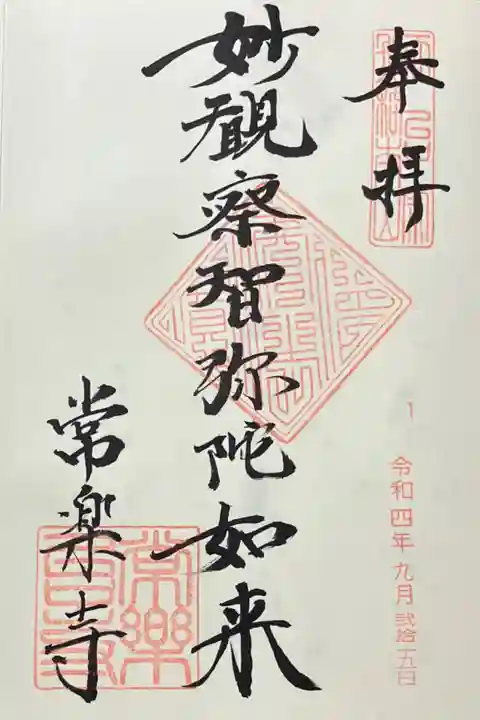 奉拝
令和四年九月弐拾五日
妙観察智弥陀如来
常楽寺